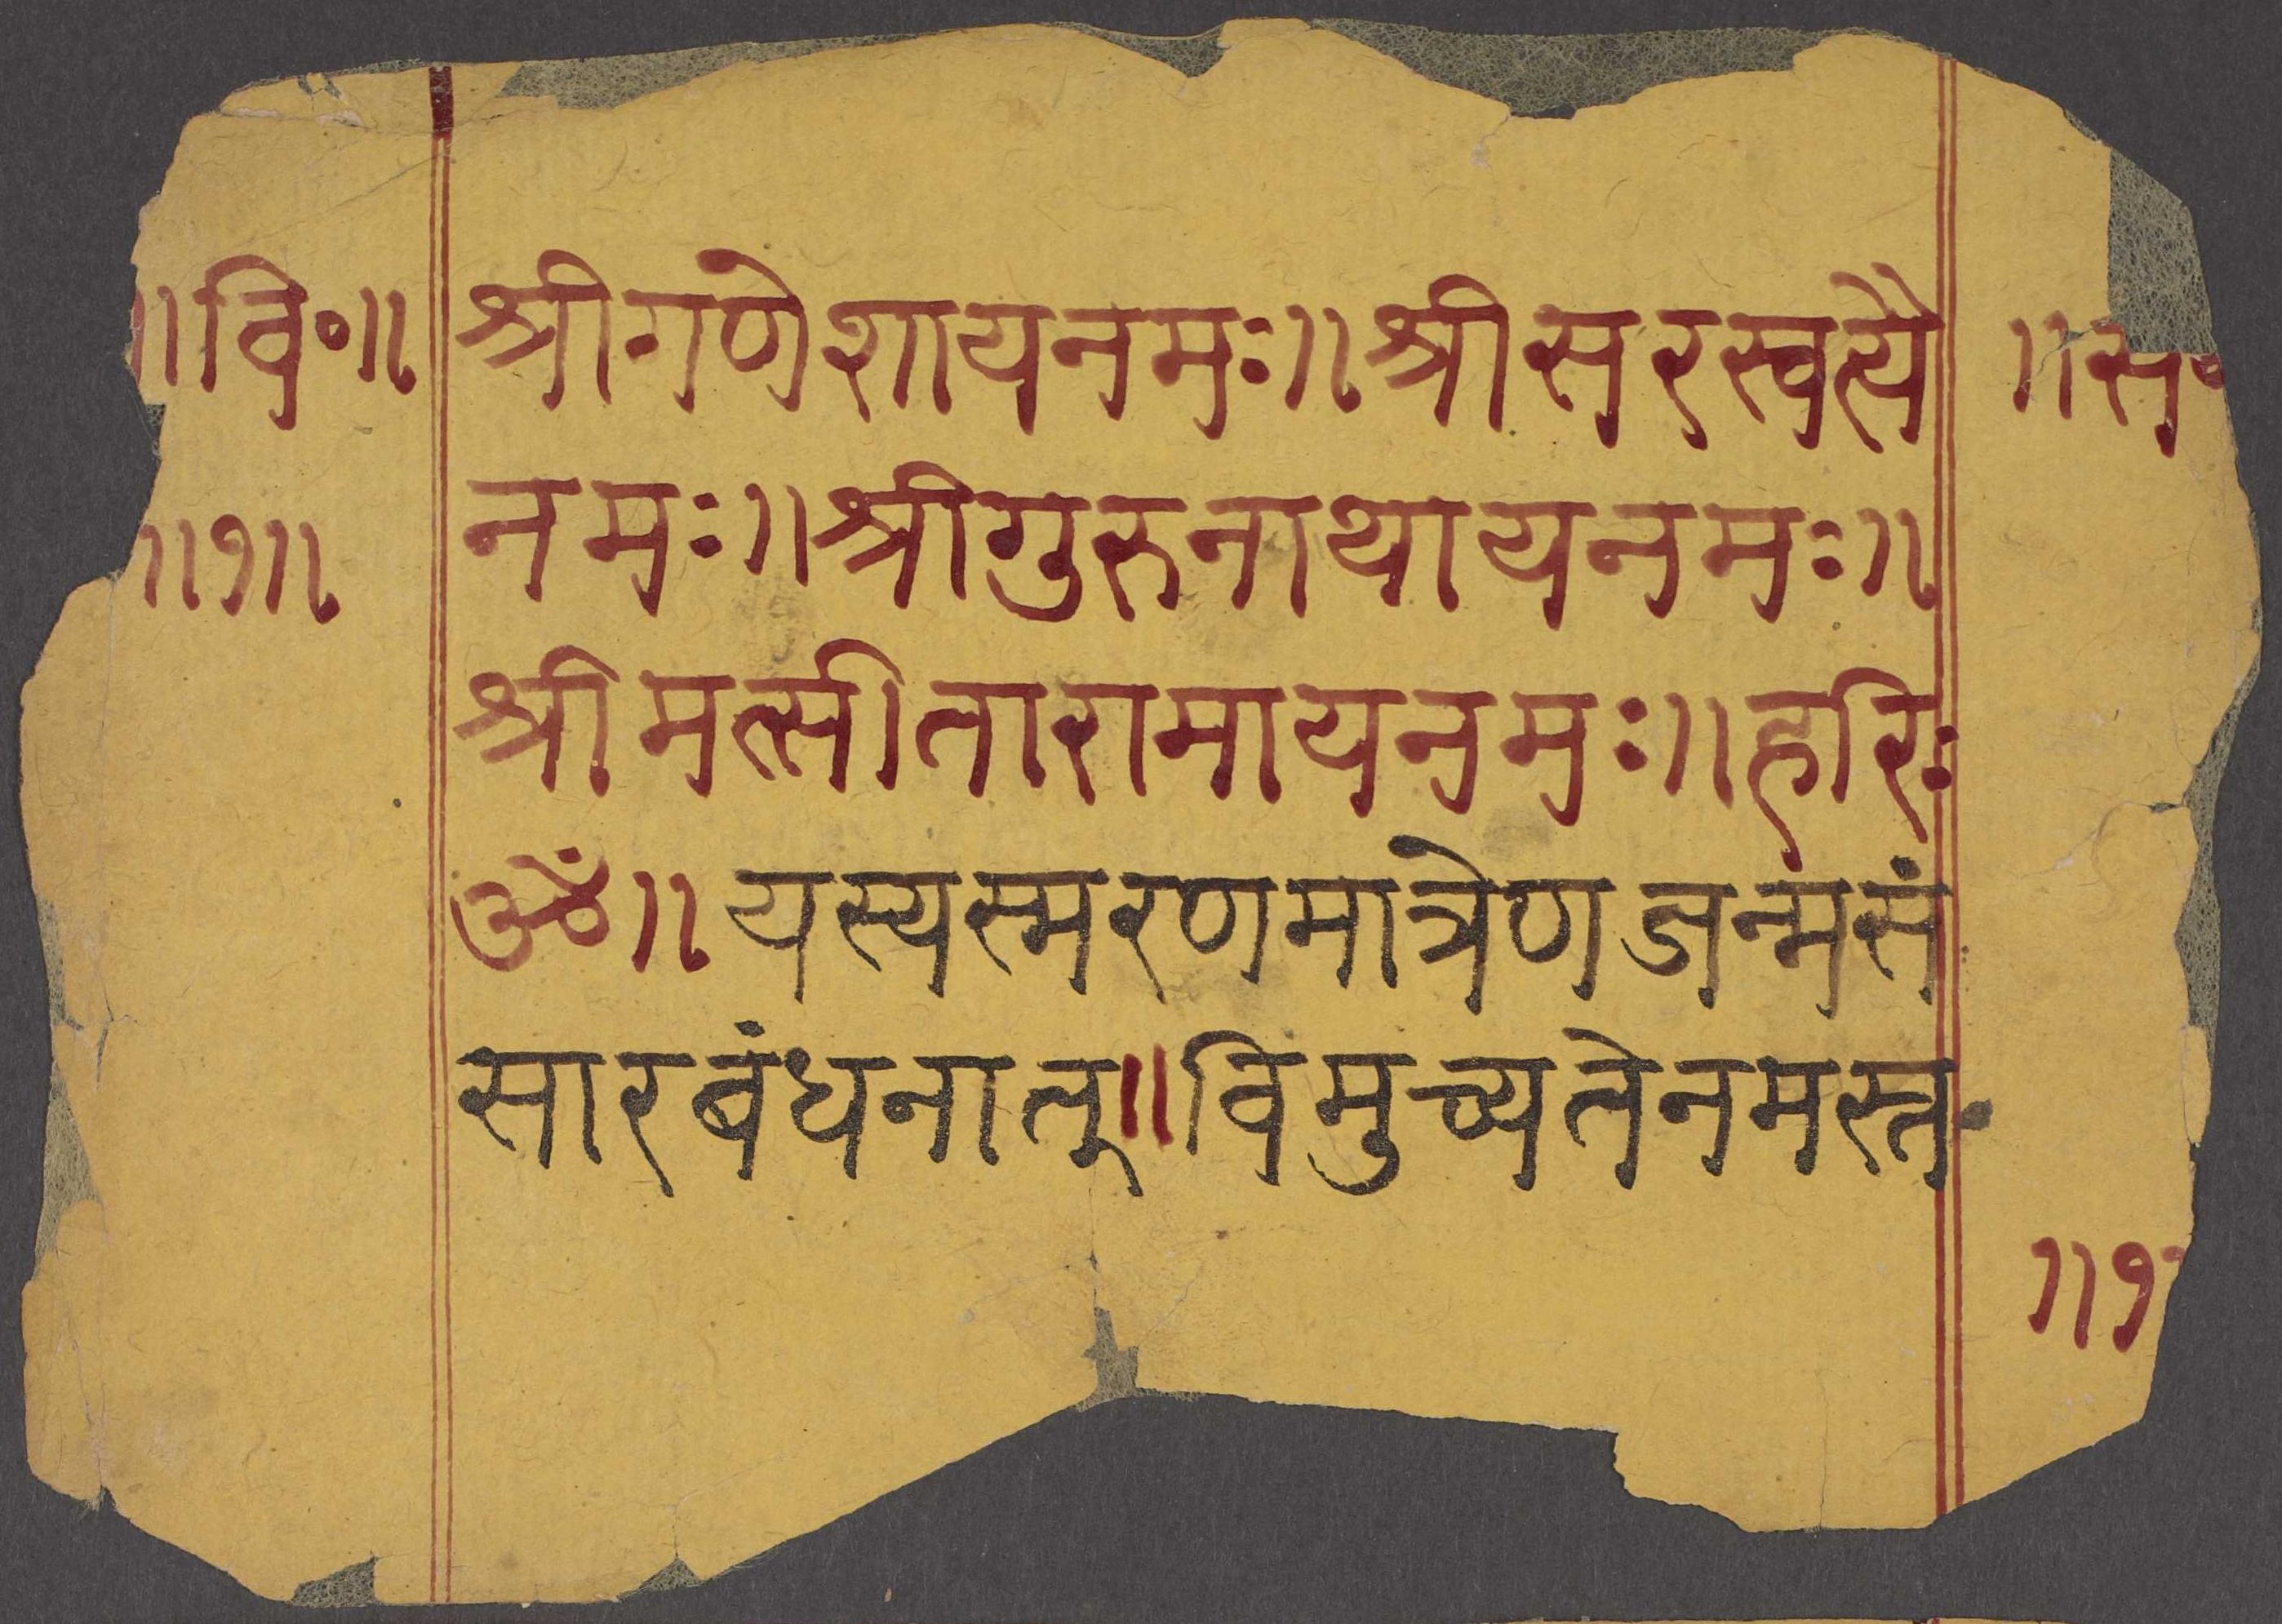 ॥वि॰॥ श्रीगणेशायनमः॥श्रीसरस्वत्यै ॥स॰
॥१॥ नमः॥श्रीगुरुनाथायनमः॥
श्रीमत्सीतारामायनमः॥हरिः
ॐ॥यस्यस्मरणमात्रेणजन्मसं
सारबंधनात्॥विमुच्यतेनमस्त
॥१